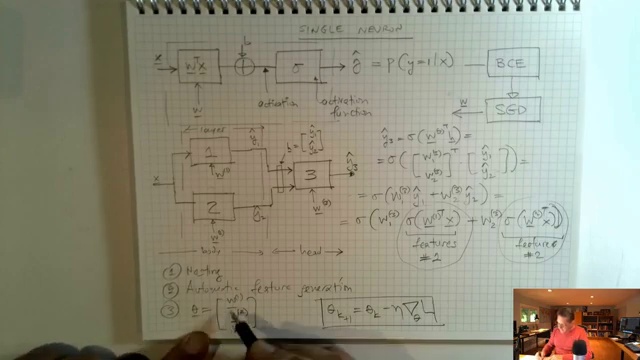 SINGLE NEURON
x wᵀx b σ ŷ = p(y=1|x) BCE
w activation activation function w SGD
layer ŷ₁ h = [ŷ₁ ŷ₂]
1 w⁽¹⁾ 3 ŷ₃ w⁽³⁾
x 2 w⁽²⁾ ŷ₂
body head
ŷ₃ = σ(w⁽³⁾ᵀ h)
= σ([w₁⁽³⁾ w₂⁽³⁾]ᵀ [ŷ₁ ŷ₂]) =
= σ(w₁⁽³⁾ŷ₁ + w₂⁽³⁾ŷ₂) =
= σ(w₁⁽³⁾ σ(w⁽¹⁾ᵀx) + w₂⁽³⁾ σ(w⁽²⁾ᵀx))
features #2 feature #2
① Nesting
② Automatic feature generation
③ θ = [w⁽¹⁾ w⁽²⁾ θₖ₊₁ = θₖ - η ∇θ L